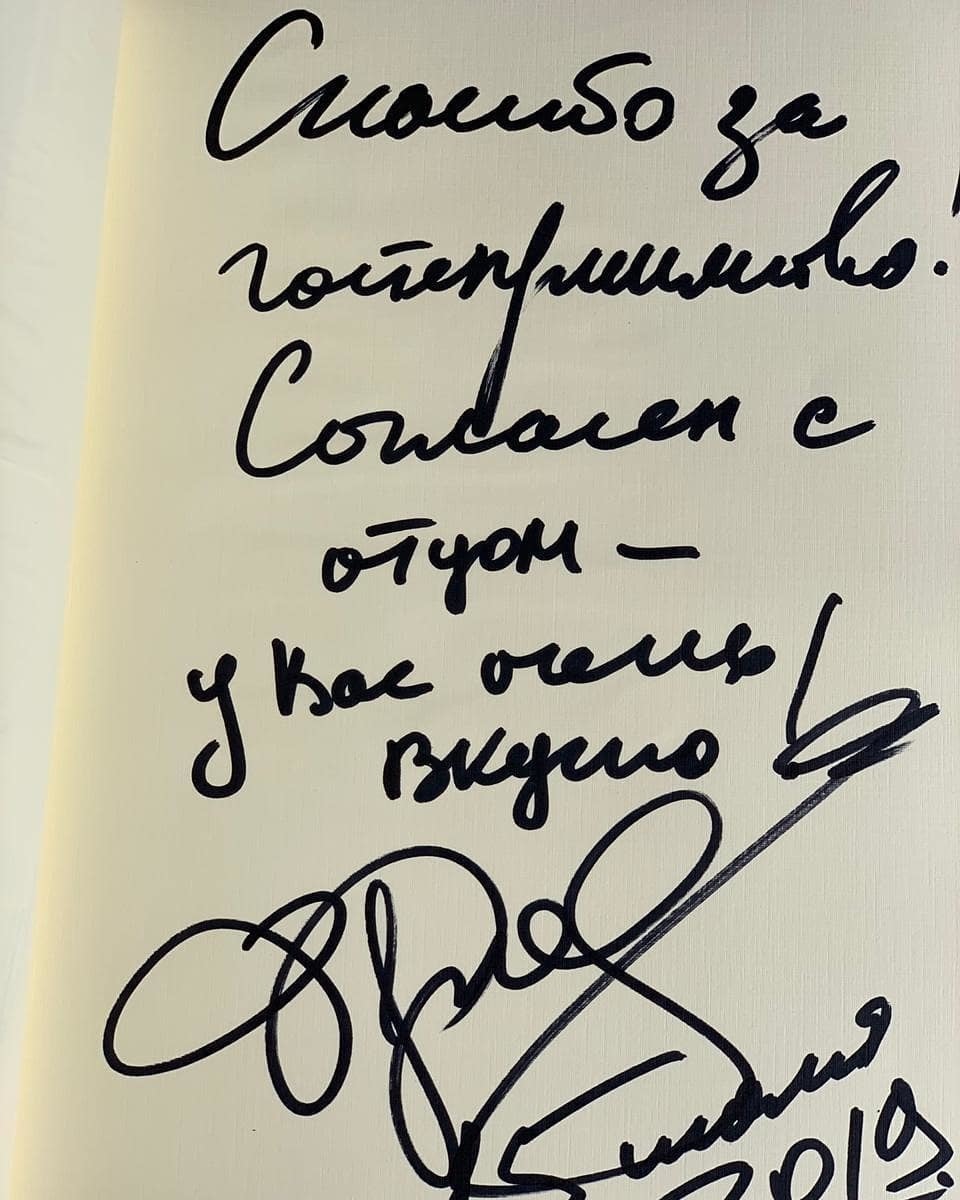 Спасибо за
гостеприимство!
Согласен с
отцом —
у Вас очень
вкусно!
2019.